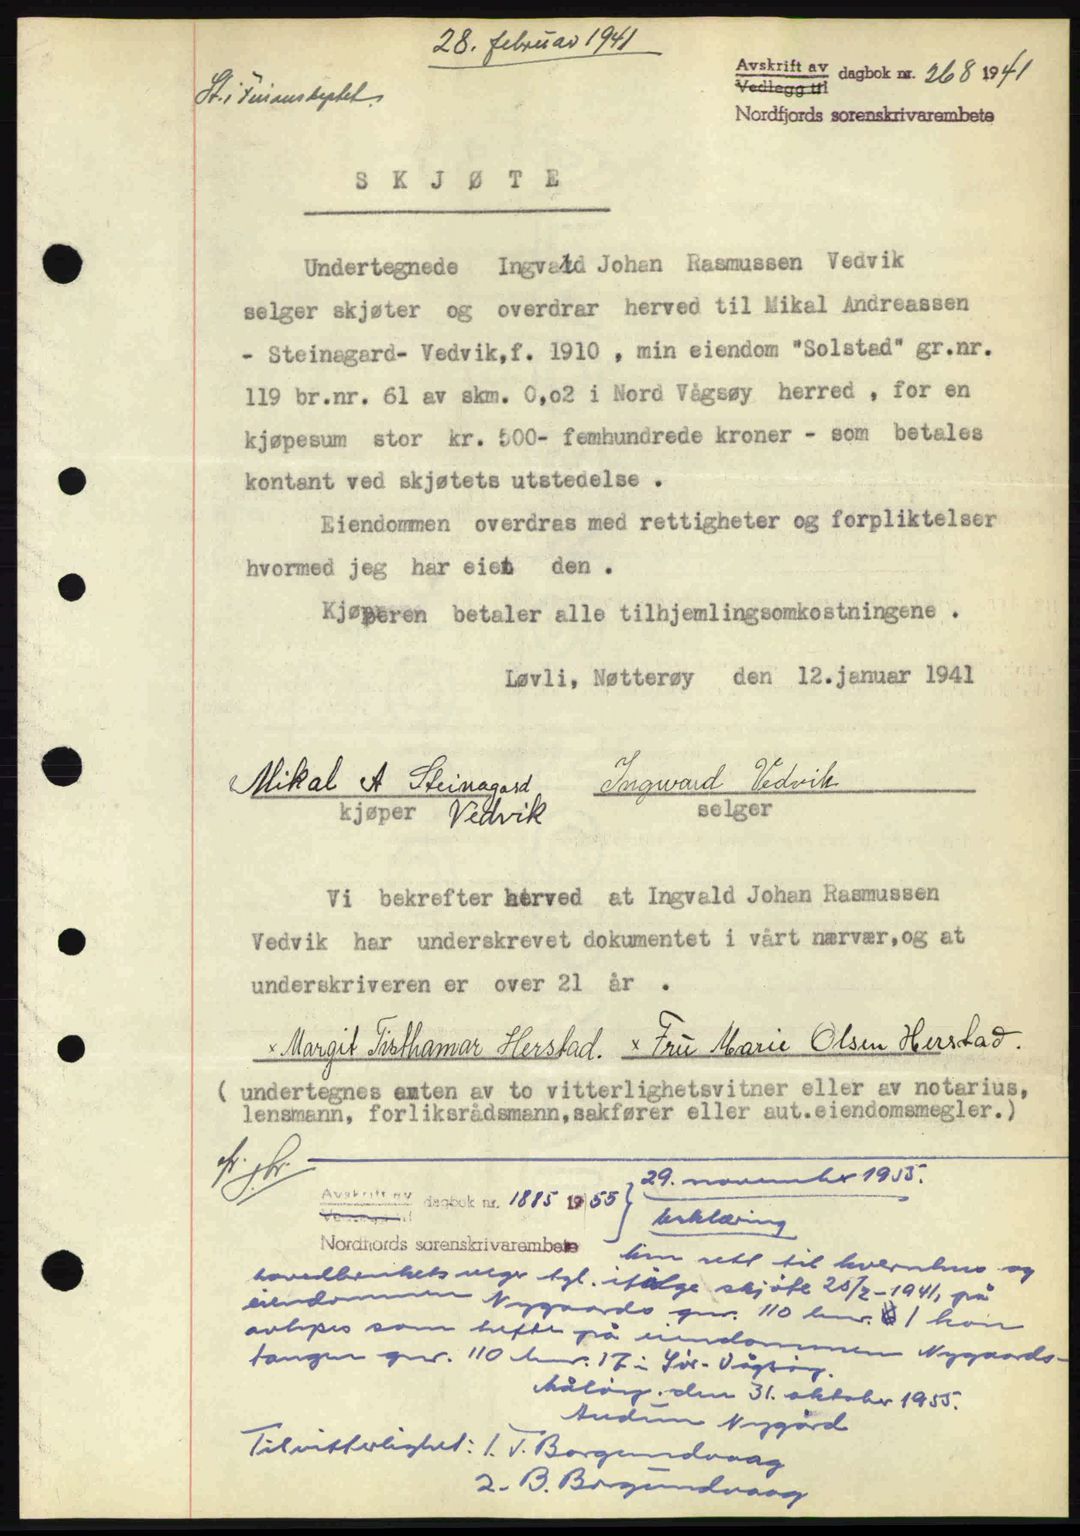 28. februar 1941
St. i
Avskrift av
Vedlegg til
dagbok nr. 268 1941
Nordfjords sorenskrivarembete
SKJØTE
Undertegnede Ingvald Johan Rasmussen Vedvik
selger skjøter og overdrar herved til Mikal Andreassen
- Steinagard- Vedvik,f. 1910 , min eiendom "Solstad" gr.nr.
119 br.nr. 61 av skm. 0,o2 i Nord Vågsøy herred , for en
kjøpesum stor kr. 500- femhundrede kroner - som betales
kontant ved skjøtets utstedelse .
Eiendommen overdras med rettigheter og forpliktelser
hvormed jeg har eiet den .
Kjøperen betaler alle tilhjemlingsomkostningene .
Løvli, Nøtterøy den 12.januar 1941
Mikal A Steinagard Ingward Vedvik
kjøper Vedvik selger
Vi bekrefter herved at Ingvald Johan Rasmussen
Vedvik har underskrevet dokumentet i vårt nærvær,og at
underskriveren er over 21 år .
x Margit Tisthamar Herstad. x Fru Marie Olsen Herstad.
( undertegnes enten av to vitterlighetsvitner eller av notarius,
lensmann, forliksrådsmann,sakfører eller aut.eiendomsmegler.)
29. november 1955.
Avskrift av
Vedlegg til
dagbok nr. 1885 1955
erklæring
Nordfjords sorenskrivarembete
rett til kvernhus og
tgl. ifølge skjøte 28/2-1941, på
eiendommen Nygaards gnr. 110 bnr. 1 kan
avlyses som hefte på eiendommen Nygaards-
tangen gnr. 110 bnr. 17 i Sør-Vågsøy.
Måløy, den 31. oktober 1955.
Audun Nygård
Til vitterlighet: 1. T. Borgundvaag
2. B. Borgundvaag